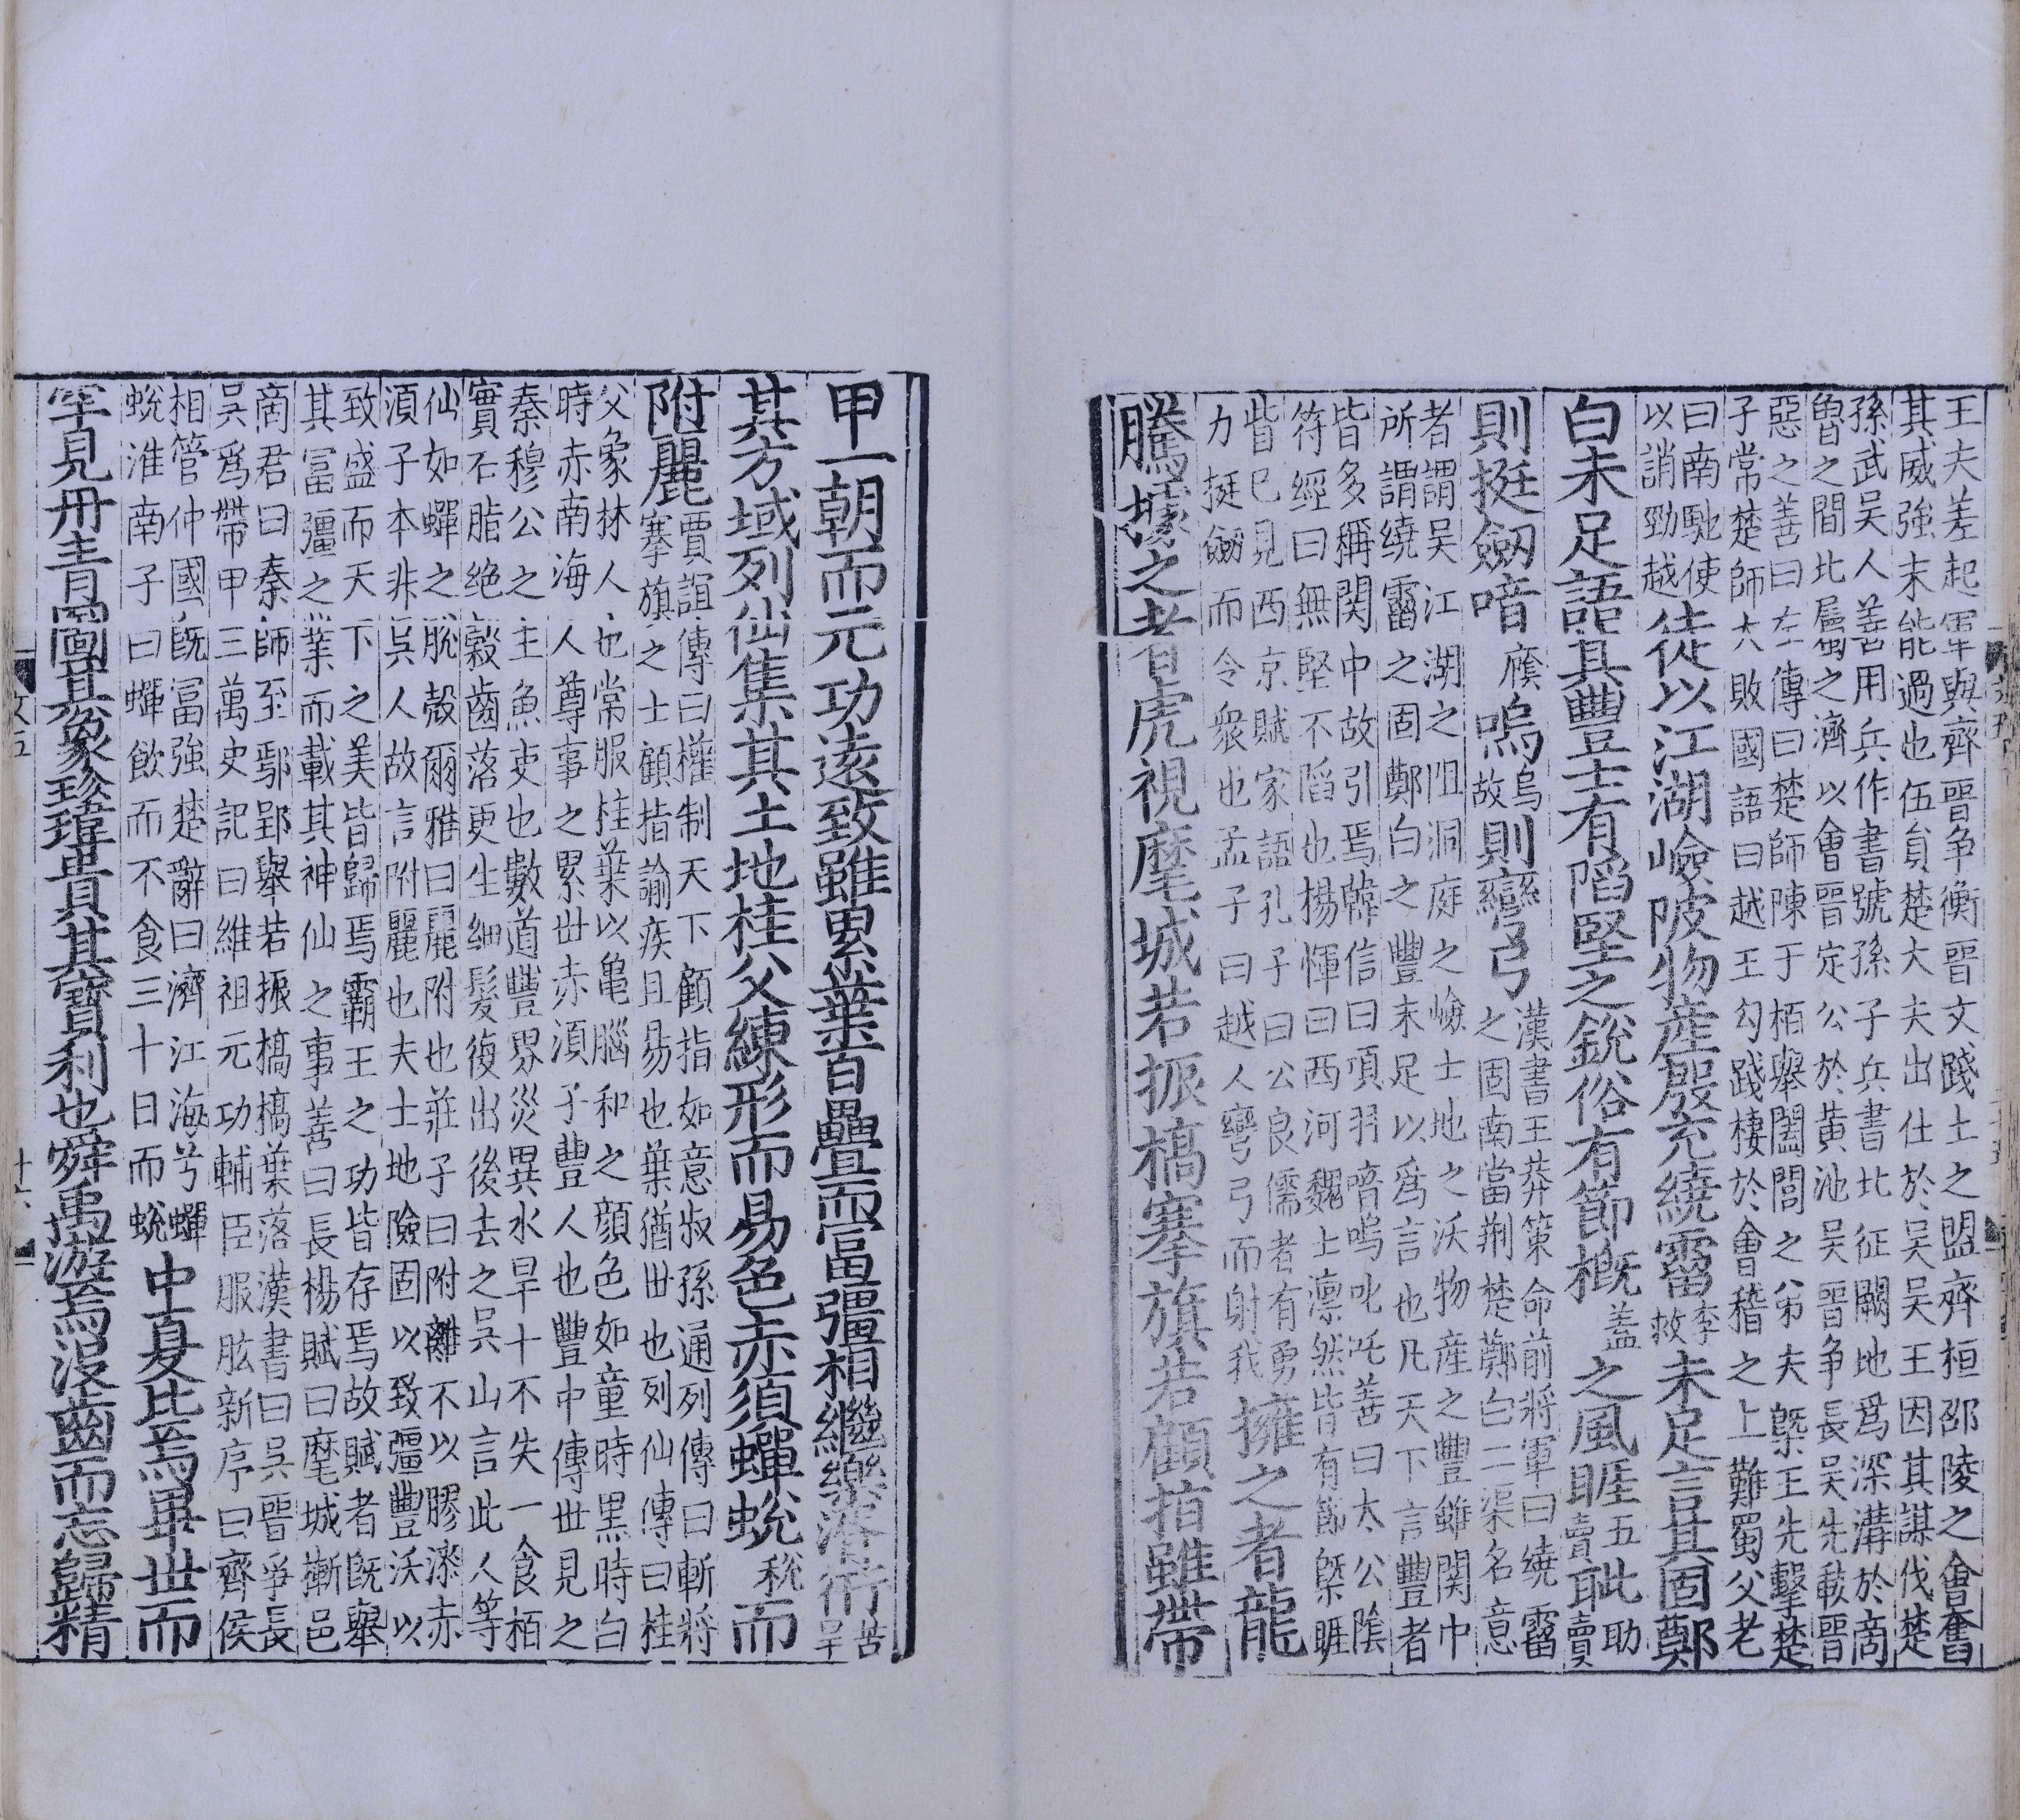 王夫差起軍與齊晉争衡晉文踐土之盟齊桓邵陵之會奮
其威強末能過也伍貟楚大夫出仕於吳吳王因其謀伐楚
孫武吳人善用兵作書號孫子兵書北征闕地爲深溝於商
魯之間北屬之濟以會晉定公於黄池吳晉争長吳先㰱晉
惡之善曰左傳曰楚師陳于栢舉闔閭之弟夫㮣王先擊楚
子常楚師大敗國語曰越王勾踐棲於會稽之上難蜀父老
曰南馳使
以誚勁越
徒以江湖嶮陂物産殷充繞霤
李
救
未足言其固鄭
白未足語其豐士有陷堅之銳俗有節槩
蓋
之風睚
五
賣
眦
助
賣
則挺劒喑
䕃
嗚
烏
故
則彎弓
漢書王莽策命前將軍曰繞霤
之固南當荆楚鄭白二渠名意
者謂吳江湖之阻洞庭之嶮士地之沃物産之豐雖関中
所謂繞霤之固鄭白之豐末足以爲言也凡天下言豐者
皆多稱関中故引焉韓信曰項羽喑嗚叱咤善曰太公陰
符經曰無堅不陷也楊惲曰西河魏土凛然皆有節㮣睚
眥已見西京賦家語孔子曰公良儒者有勇
力挺劒而令衆也孟子曰越人彎弓而射我
擁之者龍
騰㩀之者虎視麾城若振槁搴旗若顧指雖帶
甲一朝而元功逺致雖累葉百疊而富彊相繼樂湑衎
苦
旱
其方域列仙集其土地桂父練形而易色赤須蟬蛻
稅
而
附麗
賈誼傳曰權制天下顧指如意叔孫通列傳曰斬將
搴旗之士顧指諭疾且易也葉猶丗也列仙傳曰桂
父象林人也常服桂葉以亀腦和之顔色如童時黒時白
時赤南海人尊事之累丗赤湏子豐人也豐中傳丗見之
秦穆公之主魚吏也數道豐界災異水旱十不失一食栢
實石脂绝穀齒落更生细髮復出後去之吳山言此人等
仙如蟬之脫殻爾雅曰麗附也莊子曰附離不以膠漆赤
湏子本非吳人故言附麗也夫土地險固以致彊豐沃以
致盛而天下之美皆歸焉霸王之功皆存焉故賦者旣舉
其冨彊之業而載其神仙之事善曰長楊賦曰麾城摲邑
商君曰秦師至鄢郢舉若振槁槁葉落漢書曰吳晉爭長
吳爲帶甲三萬史記曰維祖元功輔臣服肱新序曰齊侯
相管仲國旣冨強楚辭曰濟江海兮蟬
蛻淮南子曰蟬飲而不食三十日而蛻
中夏比焉畢丗而
罕見丹青圖其象珍瑋貴其寶利也舜禹游焉没齒而忘歸精